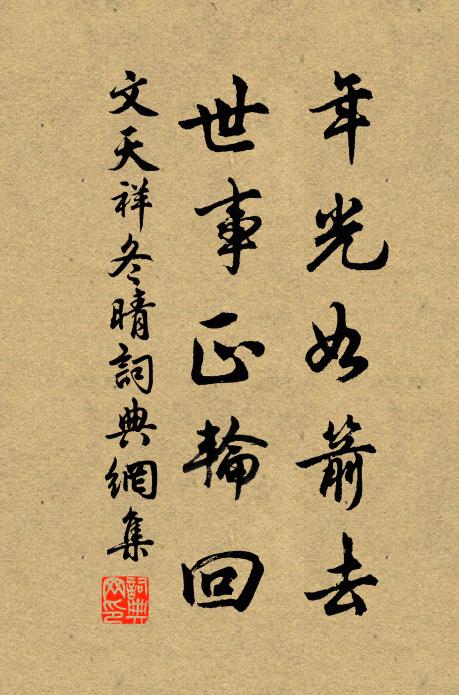 年光如箭去
世事正輪回
文天祥冬晴詞典網集
詞典
網印